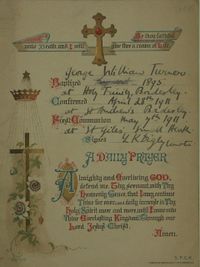 Be thou faithful
unto Death and I will give thee a crown of Life
George William Turner
Baptized 1895
at Holy Trinity Bordesley
Confirmed April 28th 1911
at St Andrew's Bordesley
First Communion May 7th 1911
at St Giles'
Signed
A DAILY PRAYER
Almighty and Everliving GOD,
defend me, Thy Servant, with Thy
Heavenly Grace, that I may continue
Thine for ever; and daily increase in Thy
Holy Spirit more and more, until I come unto
Thine Everlasting Kingdom; through our
Lord Jesus Christ.
Amen.
S.P.C.K.